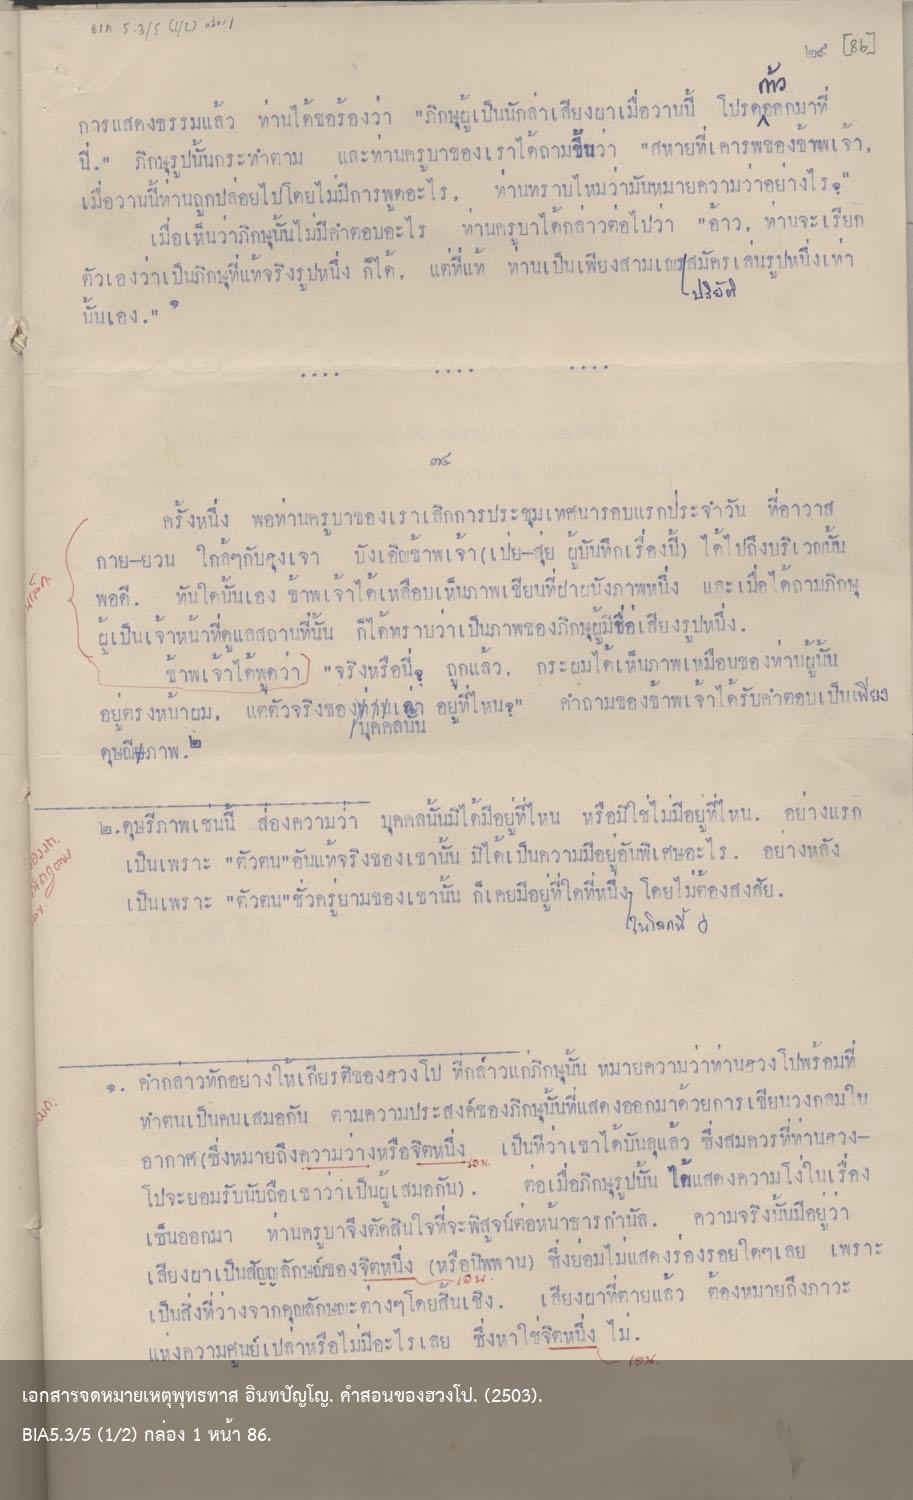 BIA 5.3/5 (1/2) กล่อง 1
๒๙ [86]
ก้าว
การแสดงธรรมแล้ว ท่านได้ขอร้องว่า "ภิกษุผู้เป็นนักล่าเสียงผาเมื่อวานนี้ โปรดออกมาที่
นี่." ภิกษุรูปนั้นกระทำตาม และท่านครูบาของเราได้ถามขึ้นว่า "สหายที่เคารพของข้าพเจ้า,
เมื่อวานนี้ท่านถูกปล่อยไปโดยไม่มีการพูดอะไร, ท่านทราบไหมว่ามันหมายความว่าอย่างไร?"
เมื่อเห็นว่าภิกษุนั้นไม่มีคำตอบอะไร ท่านครูบาได้กล่าวต่อไปว่า "อ้าว, ท่านจะเรียก
ตัวเองว่าเป็นภิกษุที่แท้จริงรูปหนึ่ง ก็ได้, แต่ที่แท้ ท่านเป็นเพียงสามเณรสมัครเล่นรูปหนึ่งเท่า
ปริยัติ
นั้นเอง." ๑
.... .... ....
๓๔
ครั้งหนึ่ง พอท่านครูบาของเราเลิกการประชุมเทศนารอบแรกประจำวัน ที่อาวาส
กาย-ยวน ใกล้ๆกับฮุงเจา บังเอิญข้าพเจ้า(เปย-สุ่ย ผู้บันทึกเรื่องนี้) ได้ไปถึงบริเวณนั้น
พอดี. ทันใดนั้นเอง ข้าพเจ้าได้เหลือบเห็นภาพเขียนที่ฝาผนังภาพหนึ่ง และเมื่อได้ถามภิกษุ
ผู้เป็นเจ้าหน้าที่ดูแลสถานที่นั้น ก็ได้ทราบว่าเป็นภาพของภิกษุผู้มีชื่อเสียงรูปหนึ่ง.
ข้าพเจ้าได้พูดว่า "จริงหรือนี่? ถูกแล้ว, กระผมได้เห็นภาพเหมือนของท่านผู้นั้น
อยู่ตรงหน้าผม, แต่ตัวจริงของท่านเล่า อยู่ที่ไหน?" คำถามของข้าพเจ้าได้รับคำตอบเป็นเพียง
บุคคลนั้น
ดุษณีภาพ.๒
๒.ดุษรีภาพเช่นนี้ ส่องความว่า บุคคลนั้นมิได้มีอยู่ที่ไหน หรือมิใช่ไม่มีอยู่ที่ไหน. อย่างแรก
เป็นเพราะ "ตัวตน"อันแท้จริงของเขานั้น มิได้เป็นความมีอยู่อันพิเศษอะไร. อย่างหลัง
เป็นเพราะ "ตัวตน"ชั่วครู่ยามของเขานั้น ก็เคยมีอยู่ที่ใดที่หนึ่ง โดยไม่ต้องสงสัย.
ในโลกนี้
๑. คำกล่าวทักอย่างให้เกียรติของฮวงโป ที่กล่าวแก่ภิกษุนั้น หมายความว่าท่านฮวงโปพร้อมที่
ทำตนเป็นคนเสมอกัน ตามความประสงค์ของภิกษุนั้นที่แสดงออกมาด้วยการเขียนวงกลมใน
อากาศ(ซึ่งหมายถึงความว่างหรือจิตหนึ่ง เป็นที่ว่าเขาได้บันลุแล้ว ซึ่งสมควรที่ท่านฮวง-
เอน.
โปจะยอมรับนับถือเขาว่าเป็นผู้เสมอกัน). ต่อเมื่อภิกษุรูปนั้น ได้แสดงความโง่ในเรื่อง
เซ็นออกมา ท่านครูบาจึงตัดสินใจที่จะพิสูจน์ต่อหน้าธารกำนัล. ความจริงนั้นมีอยู่ว่า
เสียงผาเป็นสัญญลักษณ์ของจิตหนึ่ง (หรือนิพพาน) ซึ่งย่อมไม่แสดงร่องรอยใดๆเลย เพราะ
เอน.
เป็นสิ่งที่ว่างจากคุณลักษณะต่างๆโดยสิ้นเชิง. เสียงผาที่ตายแล้ว ต้องหมายถึงภาวะ
แห่งความศูนย์เปล่าหรือไม่มีอะไรเลย ซึ่งหาใช่จิตหนึ่ง ไม่.
เอน.
เอกสารจดหมายเหตุพุทธทาส อินทปัญโญ. คำสอนของฮวงโป. (2503).
BIA5.3/5 (1/2) กล่อง 1 หน้า 86.